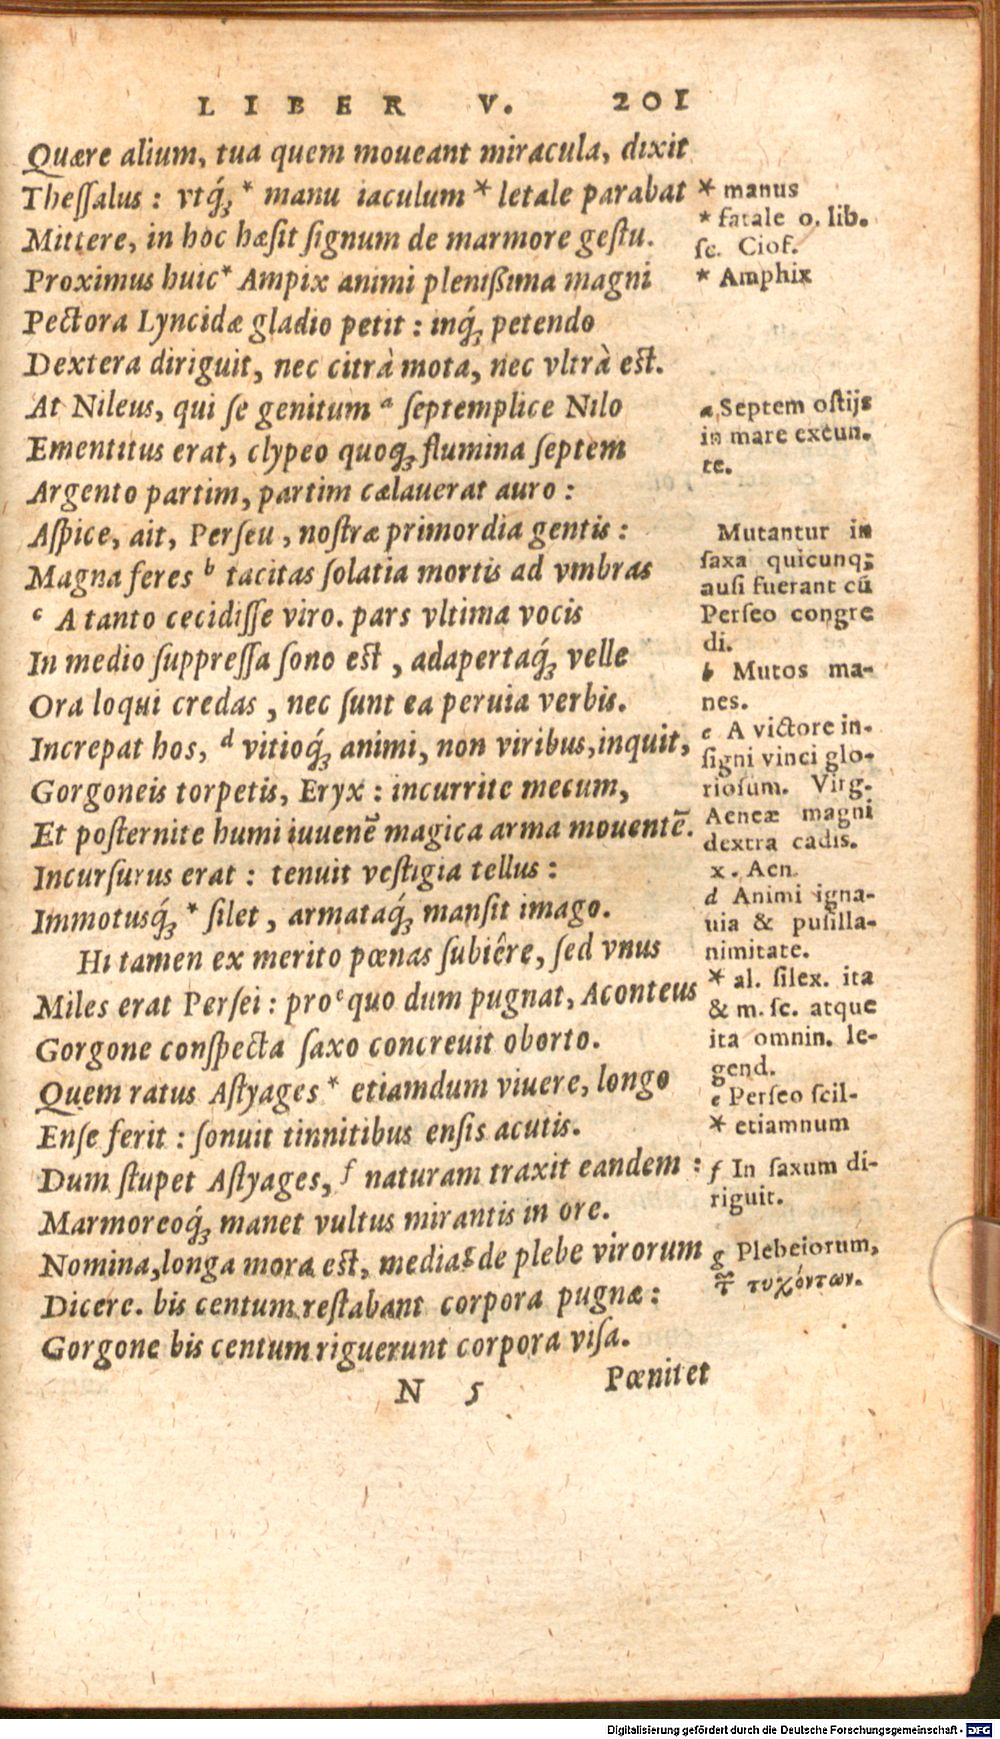 LIBER V. 201
Quære alium, tua quem moueant miracula, dixit
Theſſalus: vtq́ꝫ * manu iaculum * letale parabat
Mittere, in hoc hæſit ſignum de marmore geſtu.
Proximus huic * Ampix animi pleniſſima magni
Pectora Lyncidæ gladio petit: inq́ꝫ petendo
Dextera diriguit, nec citrà mota, nec vltrà eſt.
At Nileus, qui ſe genitum a ſeptemplice Nilo
Ementitus erat, clypeo quoqꝫ flumina ſeptem
Argento partim, partim cælauerat auro:
Aſpice, ait, Perſeu, noſtræ primordia gentis:
Magna feres b tacitas ſolatia mortis ad vmbras
c A tanto cecidiſſe viro. pars vltima vocis
In medio ſuppreſſa ſono eſt, adapertaq́ꝫ velle
Ora loqui credas, nec ſunt ea peruia verbis.
Increpat hos, d vitioq́ꝫ animi, non viribus, inquit,
Gorgoneis torpetis, Eryx: incurrite mecum,
Et poſternite humi iuuenē magica arma mouentē.
Incurſurus erat: tenuit veſtigia tellus:
Immotusq́ꝫ * ſilet, armataq́ꝫ manſit imago.
Hi tamen ex merito pœnas ſubiêre, ſed vnus
Miles erat Perſei: pro e quo dum pugnat, Aconteus
Gorgone conſpecta ſaxo concreuit oborto.
Quem ratus Aſtyages * etiamdum viuere, longo
Enſe ferit: ſonuit tinnitibus enſis acutis.
Dum ſtupet Aſtyages, f naturam traxit eandem:
Marmoreoq́ꝫ manet vultus mirantis in ore.
Nomina, longa mora eſt, media g de plebe virorum
Dicere. bis centum reſtabant corpora pugnæ:
Gorgone bis centum riguerunt corpora viſa.
N 5 Pœnitet
* manus
* fatale o. lib.
ſc. Ciof.
* Amphix
a Septem oſtijs
in mare exeun.
te.
Mutantur in
ſaxa quicunqꝫ
auſi fuerant cū
Perſeo congre
di.
b Mutos ma-
nes.
c A victore in-
ſigni vinci glo-
rioſum. Virg.
Aeneæ magni
dextra cadis.
x. Aen.
d Animi igna-
uia & puſilla-
nimitate.
* al. ſilex. ita
& m. ſc. atque
ita omnin. le-
gend.
e Perſeo ſcil-
* etiamnum
f In ſaxum di-
riguit.
g Plebeiorum,
τῶν τυχόντων.